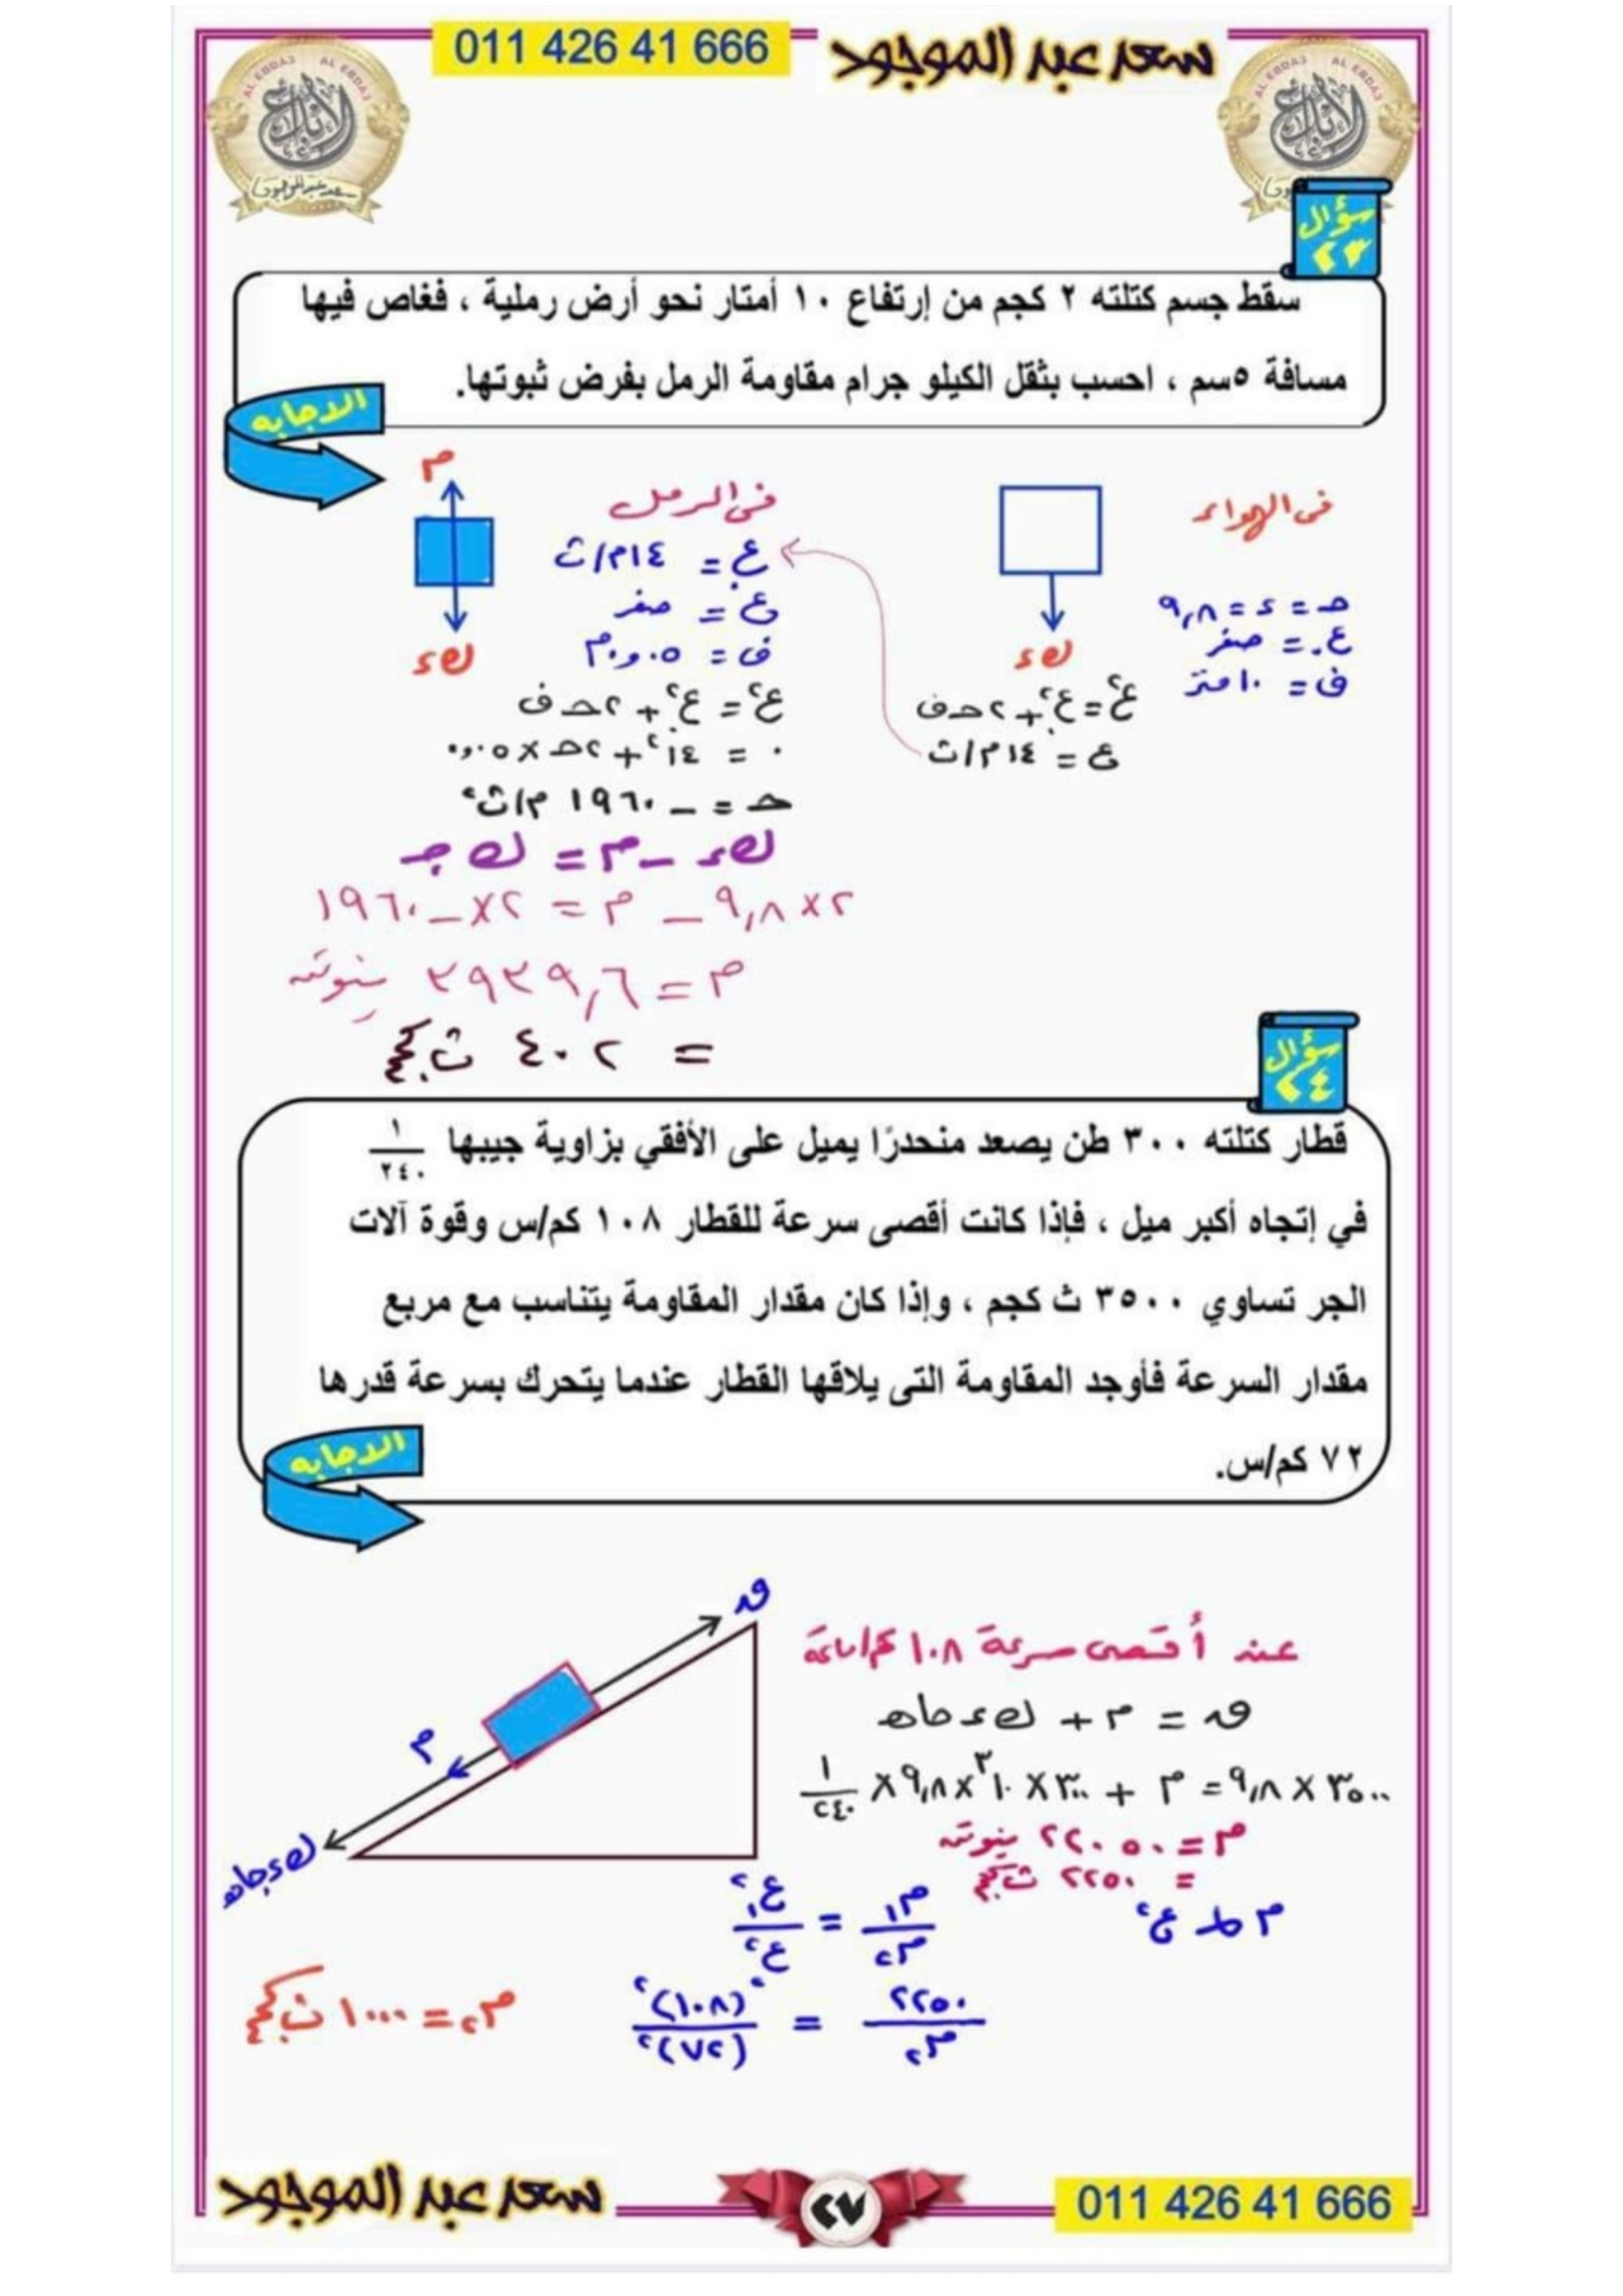 سعد عبد الموجود 011 426 41 666
AL EBDA3 AL EBDA3
الإبداع
سعد عبد الموجود
سؤال ٢٣
سقط جسم كتلته ٢ كجم من إرتفاع ١٠ أمتار نحو أرض رملية ، فغاص فيها
مسافة ٥سم ، احسب بثقل الكيلو جرام مقاومة الرمل بفرض ثبوتها.
الاجابه
فى الهواء
حـ = ء = ٩,٨
ع. = صفر
ف = ١٠ متر
ك ء
ع٢ = ع.٢ + ٢ حـ ف
ع = ١٤ م/ث
فى الرمل
م
ك ء
ع. = ١٤ م/ث
ع = صفر
ف = ٠,٠٥ م
ع٢ = ع.٢ + ٢ حـ ف
٠ = ١٤٢ + ٢ حـ × ٠,٠٥
حـ = – ١٩٦٠ م/ث٢
ك ء – م = ك جـ
٢ × ٩,٨ – م = ٢ × – ١٩٦٠
م = ٣٩٣٩,٦ نيوتن
= ٤٠٢ ث.كجم
سؤال ٢٤
قطار كتلته ٣٠٠ طن يصعد منحدرًا يميل على الأفقي بزاوية جيبها ١/٢٤٠
في إتجاه أكبر ميل ، فإذا كانت أقصى سرعة للقطار ١٠٨ كم/س وقوة آلات
الجر تساوي ٣٥٠٠ ث كجم ، وإذا كان مقدار المقاومة يتناسب مع مربع
مقدار السرعة فأوجد المقاومة التى يلاقها القطار عندما يتحرك بسرعة قدرها
٧٢ كم/س.
الاجابه
عند أقصى سرعة ١٠٨ كم/ساعة
ق = م + ك ء حا هـ
٣٥٠٠ × ٩,٨ = م + ٣٠٠ × ١٠٣ × ٩,٨ × ١/٢٤٠
م = ٢٢٠٥٠ نيوتن
= ٢٢٥٠ ث.كجم
ق
م
ك ء جا هـ
م ∝ ع٢
م١/م٢ = ع١٢/ع٢٢
٢٢٥٠/م٢ = (١٠٨)٢/(٧٢)٢
م٢ = ١٠٠٠ ث.كجم
سعد عبد الموجود ٢٧ 011 426 41 666